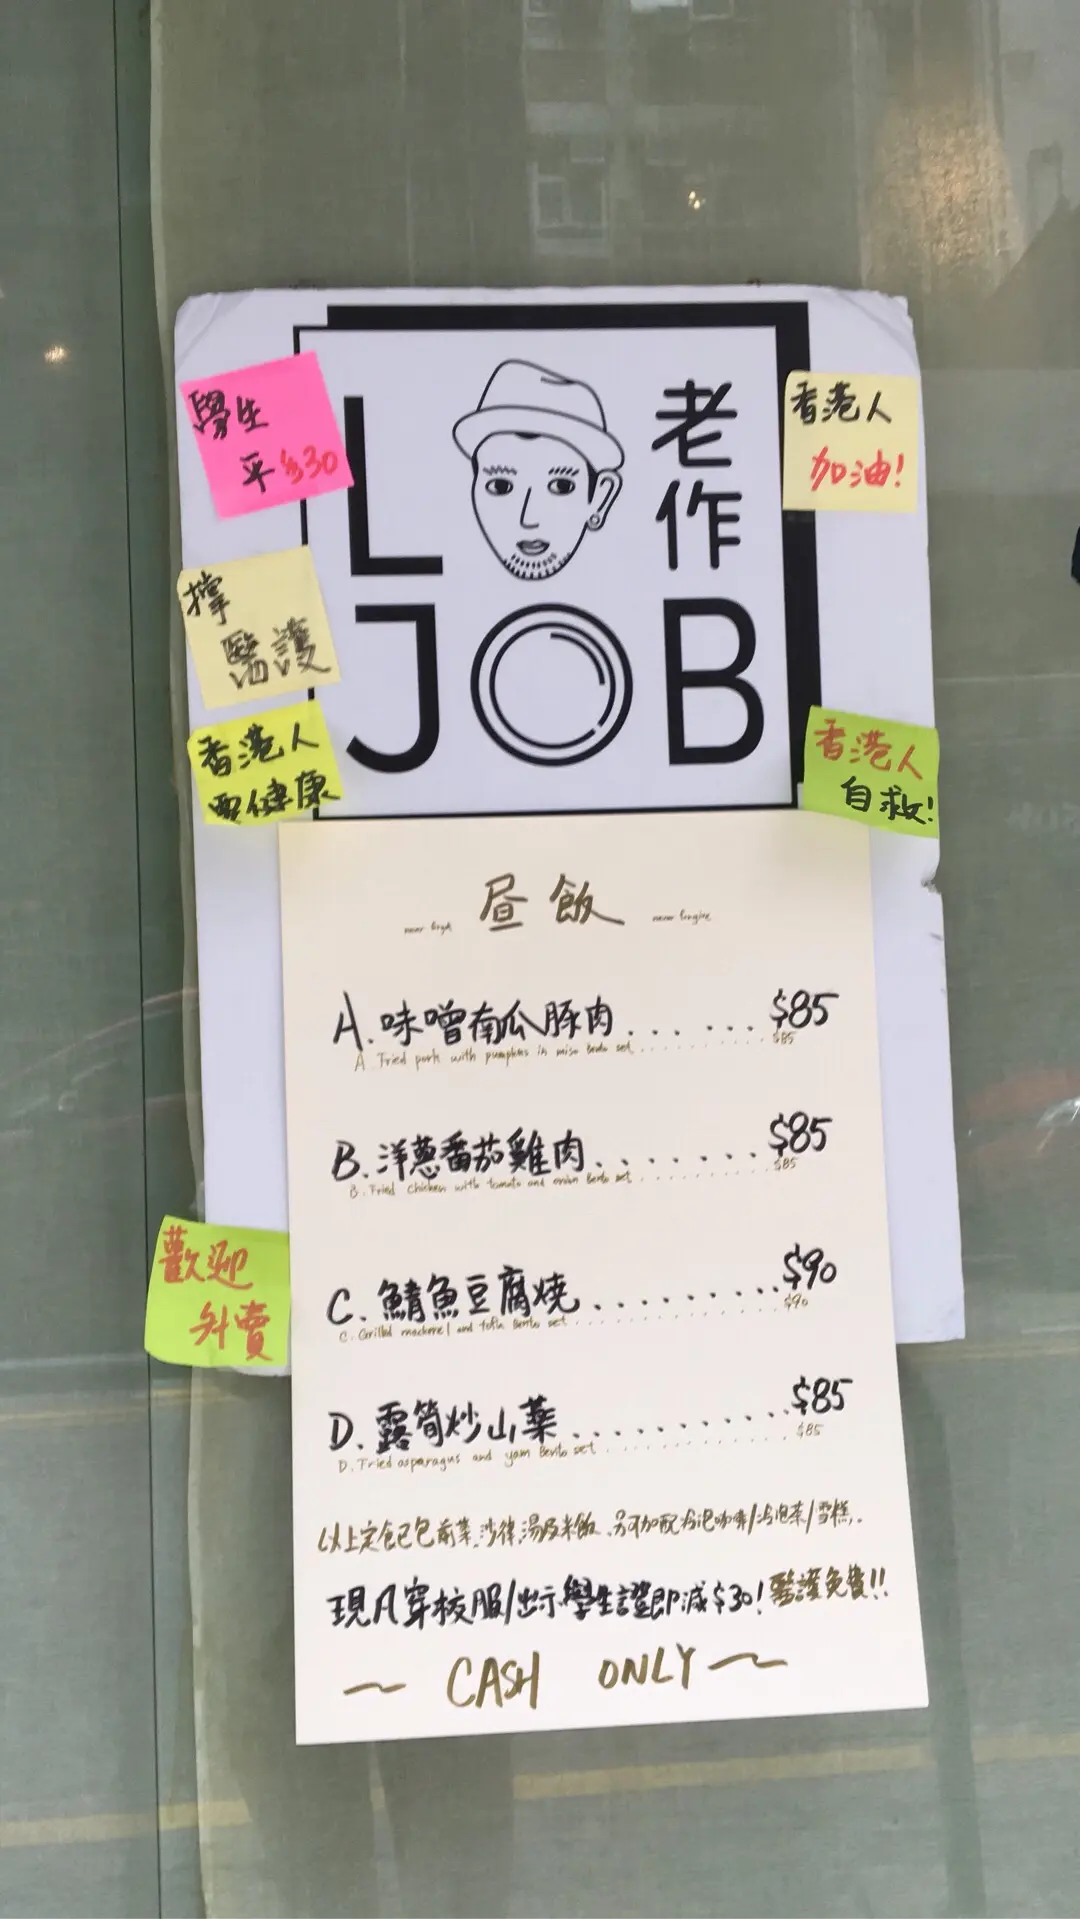 學生
平$30
撐
醫護
香港人
要健康
L
老作
JOB
香港人
加油!
香港人
自救!
昼飯
never forget
never forgive
A. 味噌南瓜豚肉 . . . . . . . $85
A. Fried pork with pumpkins in miso Bento set . . . . . . . . . . $85
B. 洋蔥番茄雞肉 . . . . . . . $85
B. Fried Chicken with tomato and onion Bento set . . . . . . . . . . $85
C. 鯖魚豆腐燒 . . . . . . . . . $90
C. Grilled mackerel and tofu Bento set . . . . . . . . . . . . . $90
D. 露筍炒山藥 . . . . . . . . . . $85
D. Fried asparagus and yam Bento set . . . . . . . . . . . . . $85
歡迎
外賣
以上定食已包前菜,沙律,湯及米飯,另可加配冷泡咖啡/冷泡茶/雪糕.
現凡穿校服/出示學生證即減$30! 醫護免費!!
~ CASH ONLY ~